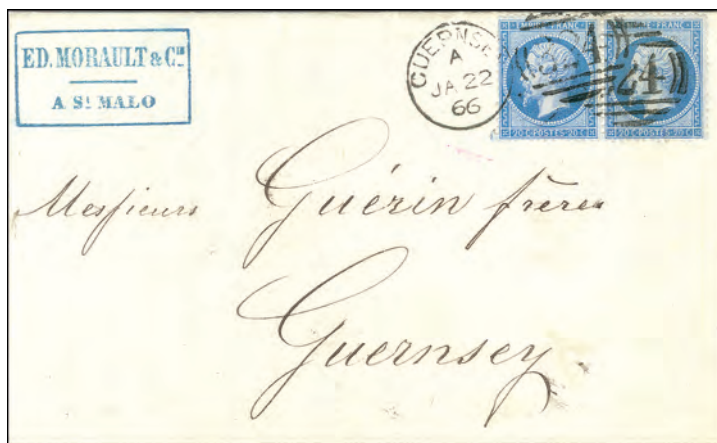 ED. MORAULT & Cie
A St MALO
GUERNSEY
A
JA 22
66
EMPIRE FRANC
20 C POSTES 20 C
20 C POSTES 20 C
324
Messieurs Guérin frères
Guernsey